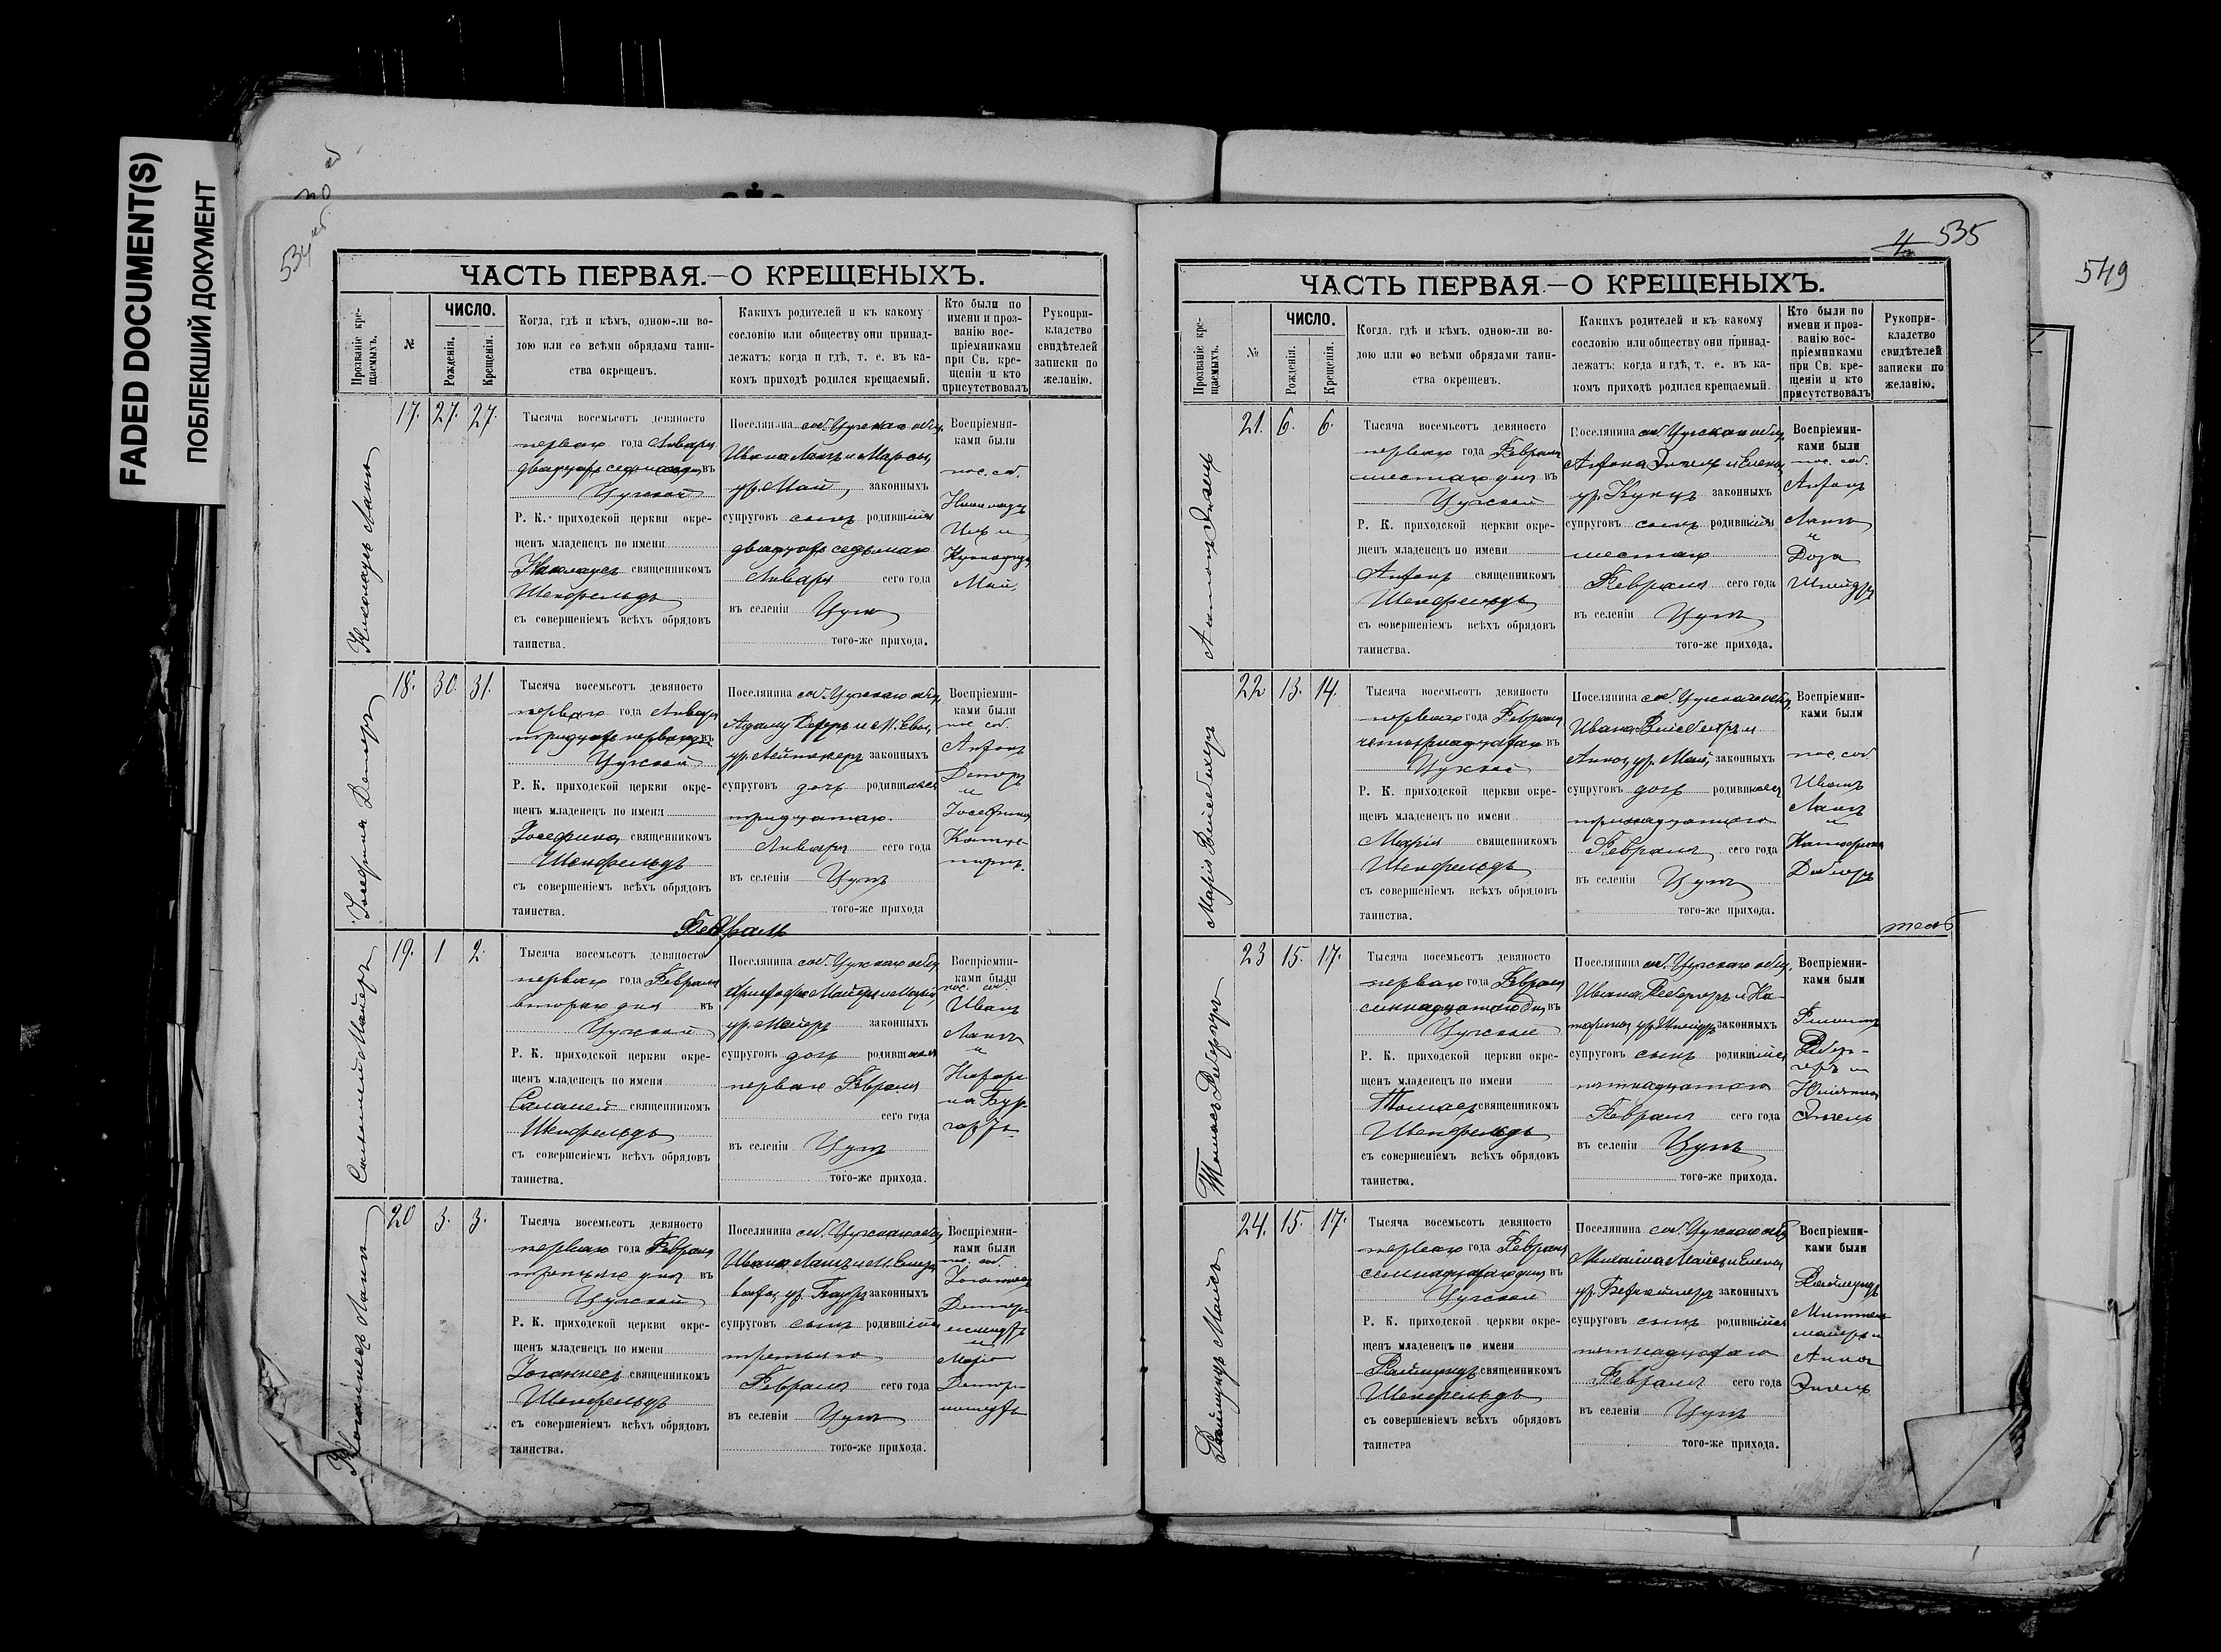 FADED DOCUMENT(S)
ПОБЛЕКШИЙ ДОКУМЕНТ
534 об.
ЧАСТЬ ПЕРВАЯ.—О КРЕЩЕНЫХЪ.
Прозваніе кре-
щаемыхъ.
№
ЧИСЛО.
Рожденія.
Крещенія.
Когда, гдѣ и кѣмъ, одною-ли во-
дою или со всѣми обрядами таин-
ства окрещенъ.
Какихъ родителей и къ какому
сословію или обществу они принад-
лежатъ; когда и гдѣ, т. е. въ ка-
комъ приходѣ родился крещаемый.
Кто были по
имени и проз-
ванію вос-
пріемниками
при Св. кре-
щеніи и кто
присутствовалъ
Рукопри-
кладство
свидѣтелей
записки по
желанію.
Николаусъ Лангъ
17. 27. 27.
Тысяча восемьсотъ девяносто
перваго года Января
двадцать седьмаго въ
Цугской
Р. К. приходской церкви окре-
щенъ младенецъ по имени
Николаусъ священникомъ
Шенфельдъ
съ совершеніемъ всѣхъ обрядовъ
таинства.
Поселянина соб. Цугскаго общ.
Ивана Лангъ и
ур. Май, законныхъ
супруговъ сынъ родившійся
двадцать седьмаго
Января сего года
въ селеніи Цугъ
того-же прихода.
Воспріемни-
ками были
пос. соб.
Май.
Іозефина
18. 30. 31.
Тысяча восемьсотъ девяносто
перваго года Января
тридцать перваго въ
Цугской
Р. К. приходской церкви окре-
щенъ младенецъ по имени
Іозефина священникомъ
Шенфельдъ
съ совершеніемъ всѣхъ обрядовъ
таинства.
Поселянина соб. Цугскаго общ.
и М. Евы
законныхъ
супруговъ дочь родившаяся
тридцатаго
Января сего года
въ селеніи Цугъ
того-же прихода
Воспріемни-
ками были
пос. соб.
Антонъ
и
Іосефина
Февраль
Майеръ
19. 1 2.
Тысяча восемьсотъ девяносто
перваго года Февраля
втораго дня въ
Цугской
Р. К. приходской церкви окре-
щенъ младенецъ по имени
священникомъ
Шенфельдъ
съ совершеніемъ всѣхъ обрядовъ
таинства.
Поселянина соб. Цугскаго общ.
ур. Мейеръ законныхъ
супруговъ дочь родившаяся
перваго Февраля
сего года
въ селеніи Цугъ
того-же прихода.
Воспріемни-
ками были
пос. соб.
Иванъ
Лангъ
и
Іоганнесъ Лангъ
20 3. 3.
Тысяча восемьсотъ девяносто
перваго года Февраля
третьяго дня въ
Цугской
Р. К. приходской церкви окре-
щенъ младенецъ по имени
Іоганнесъ священникомъ
Шенфельдъ
съ совершеніемъ всѣхъ обрядовъ
таинства.
Поселянина соб. Цугскаго общ.
Ивана Лангъ и М. Елиза
веты ур. Бауръ законныхъ
супруговъ сынъ родившійся
третьяго
Февраля сего года
въ селеніи Цугъ
того-же прихода.
Воспріемни-
ками были
пос. соб.
Іоганнесъ
и
Марія
4
535
549
ЧАСТЬ ПЕРВАЯ.—О КРЕЩЕНЫХЪ.
Прозваніе кре-
щаемыхъ.
№
ЧИСЛО.
Рожденія.
Крещенія.
Когда, гдѣ и кѣмъ, одною-ли во-
дою или со всѣми обрядами таин-
ства окрещенъ.
Какихъ родителей и къ какому
сословію или обществу они принад-
лежатъ; когда и гдѣ, т. е. въ ка-
комъ приходѣ родился крещаемый.
Кто были по
имени и проз-
ванію вос-
пріемниками
при Св. кре-
щеніи и кто
присутствовалъ
Рукопри-
кладство
свидѣтелей
записки по
желанію.
Антонъ Энгель
21. 6. 6.
Тысяча восемьсотъ девяносто
перваго года Февраля
шестаго дня въ
Цугской
Р. К. приходской церкви окре-
щенъ младенецъ по имени
Антонъ священникомъ
Шенфельдъ
съ совершеніемъ всѣхъ обрядовъ
таинства.
Поселянина соб. Цугскаго общ.
Антона Энгель и Елены
ур. Кунцъ законныхъ
супруговъ сынъ родившійся
шестаго
Февраля сего года
въ селеніи Цугъ
того-же прихода.
Воспріемни-
ками были
пос. соб.
Антонъ
Лангъ
и
Роза
Шнейдръ
Марія
22 13. 14.
Тысяча восемьсотъ девяносто
перваго года Февраля
четырнадцатаго въ
Цугской
Р. К. приходской церкви окре-
щенъ младенецъ по имени
Марія священникомъ
Шенфельдъ
съ совершеніемъ всѣхъ обрядовъ
таинства.
Поселянина соб. Цугскаго общ.
Ивана
Анны ур. Май, законныхъ
супруговъ дочь родившаяся
тринадцатаго
Февраля сего года
въ селеніи Цугъ
того-же прихода.
Воспріемни-
ками были
пос. соб.
Иванъ
Лангъ
и
Катарина
Томасъ Ребергеръ
23 15. 17.
Тысяча восемьсотъ девяносто
перваго года Февраля
семнадцатаго дня въ
Цугской
Р. К. приходской церкви окре-
щенъ младенецъ по имени
Томасъ священникомъ
Шенфельдъ
съ совершеніемъ всѣхъ обрядовъ
таинства.
Поселянина соб. Цугскаго общ.
Ивана Ребергеръ и Ка-
тарины ур. Шнейдръ законныхъ
супруговъ сынъ родившійся
пятнадцатаго
Февраля сего года
въ селеніи Цугъ
того-же прихода.
Воспріемни-
ками были
Филиппъ
Ребер-
геръ и
Юліянна
Энгель
Раймундъ Майсъ
24. 15. 17.
Тысяча восемьсотъ девяносто
перваго года Февраля
семнадцатаго дня въ
Цугской
Р. К. приходской церкви окре-
щенъ младенецъ по имени
Раймундъ священникомъ
Шенфельдъ
съ совершеніемъ всѣхъ обрядовъ
таинства
Поселянина соб. Цугскаго общ.
Михаила Майсъ и Елены
законныхъ
супруговъ сынъ родившійся
пятнадцатаго
Февраля сего года
въ селеніи Цугъ
того-же прихода.
Воспріемни-
ками были
Раймундъ
Миттель-
майеръ и
Анна
Энгель